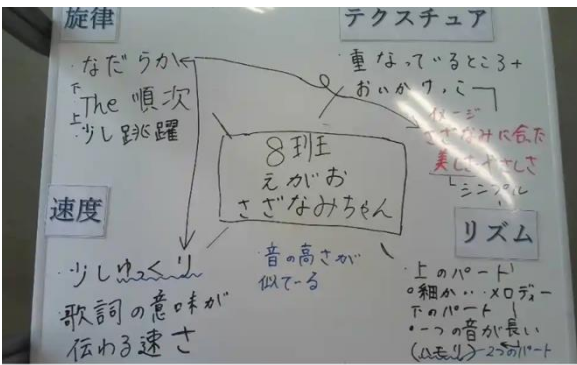 旋律
なだらか
下
The 順次
上
少し跳躍
テクスチュア
・重なっているところ+
おいかけっこ
イメージ
さざなみに合った
美しさやさしさ
シンプル
8班
えがお
さざなみちゃん
速度
少しゆっくり
歌詞の意味が
伝わる速さ
音の高さが
似ている
リズム
・上のパート
○細かい・メロディー
下のパート
○一つの音が長い
(ハモリ)
2つのパート